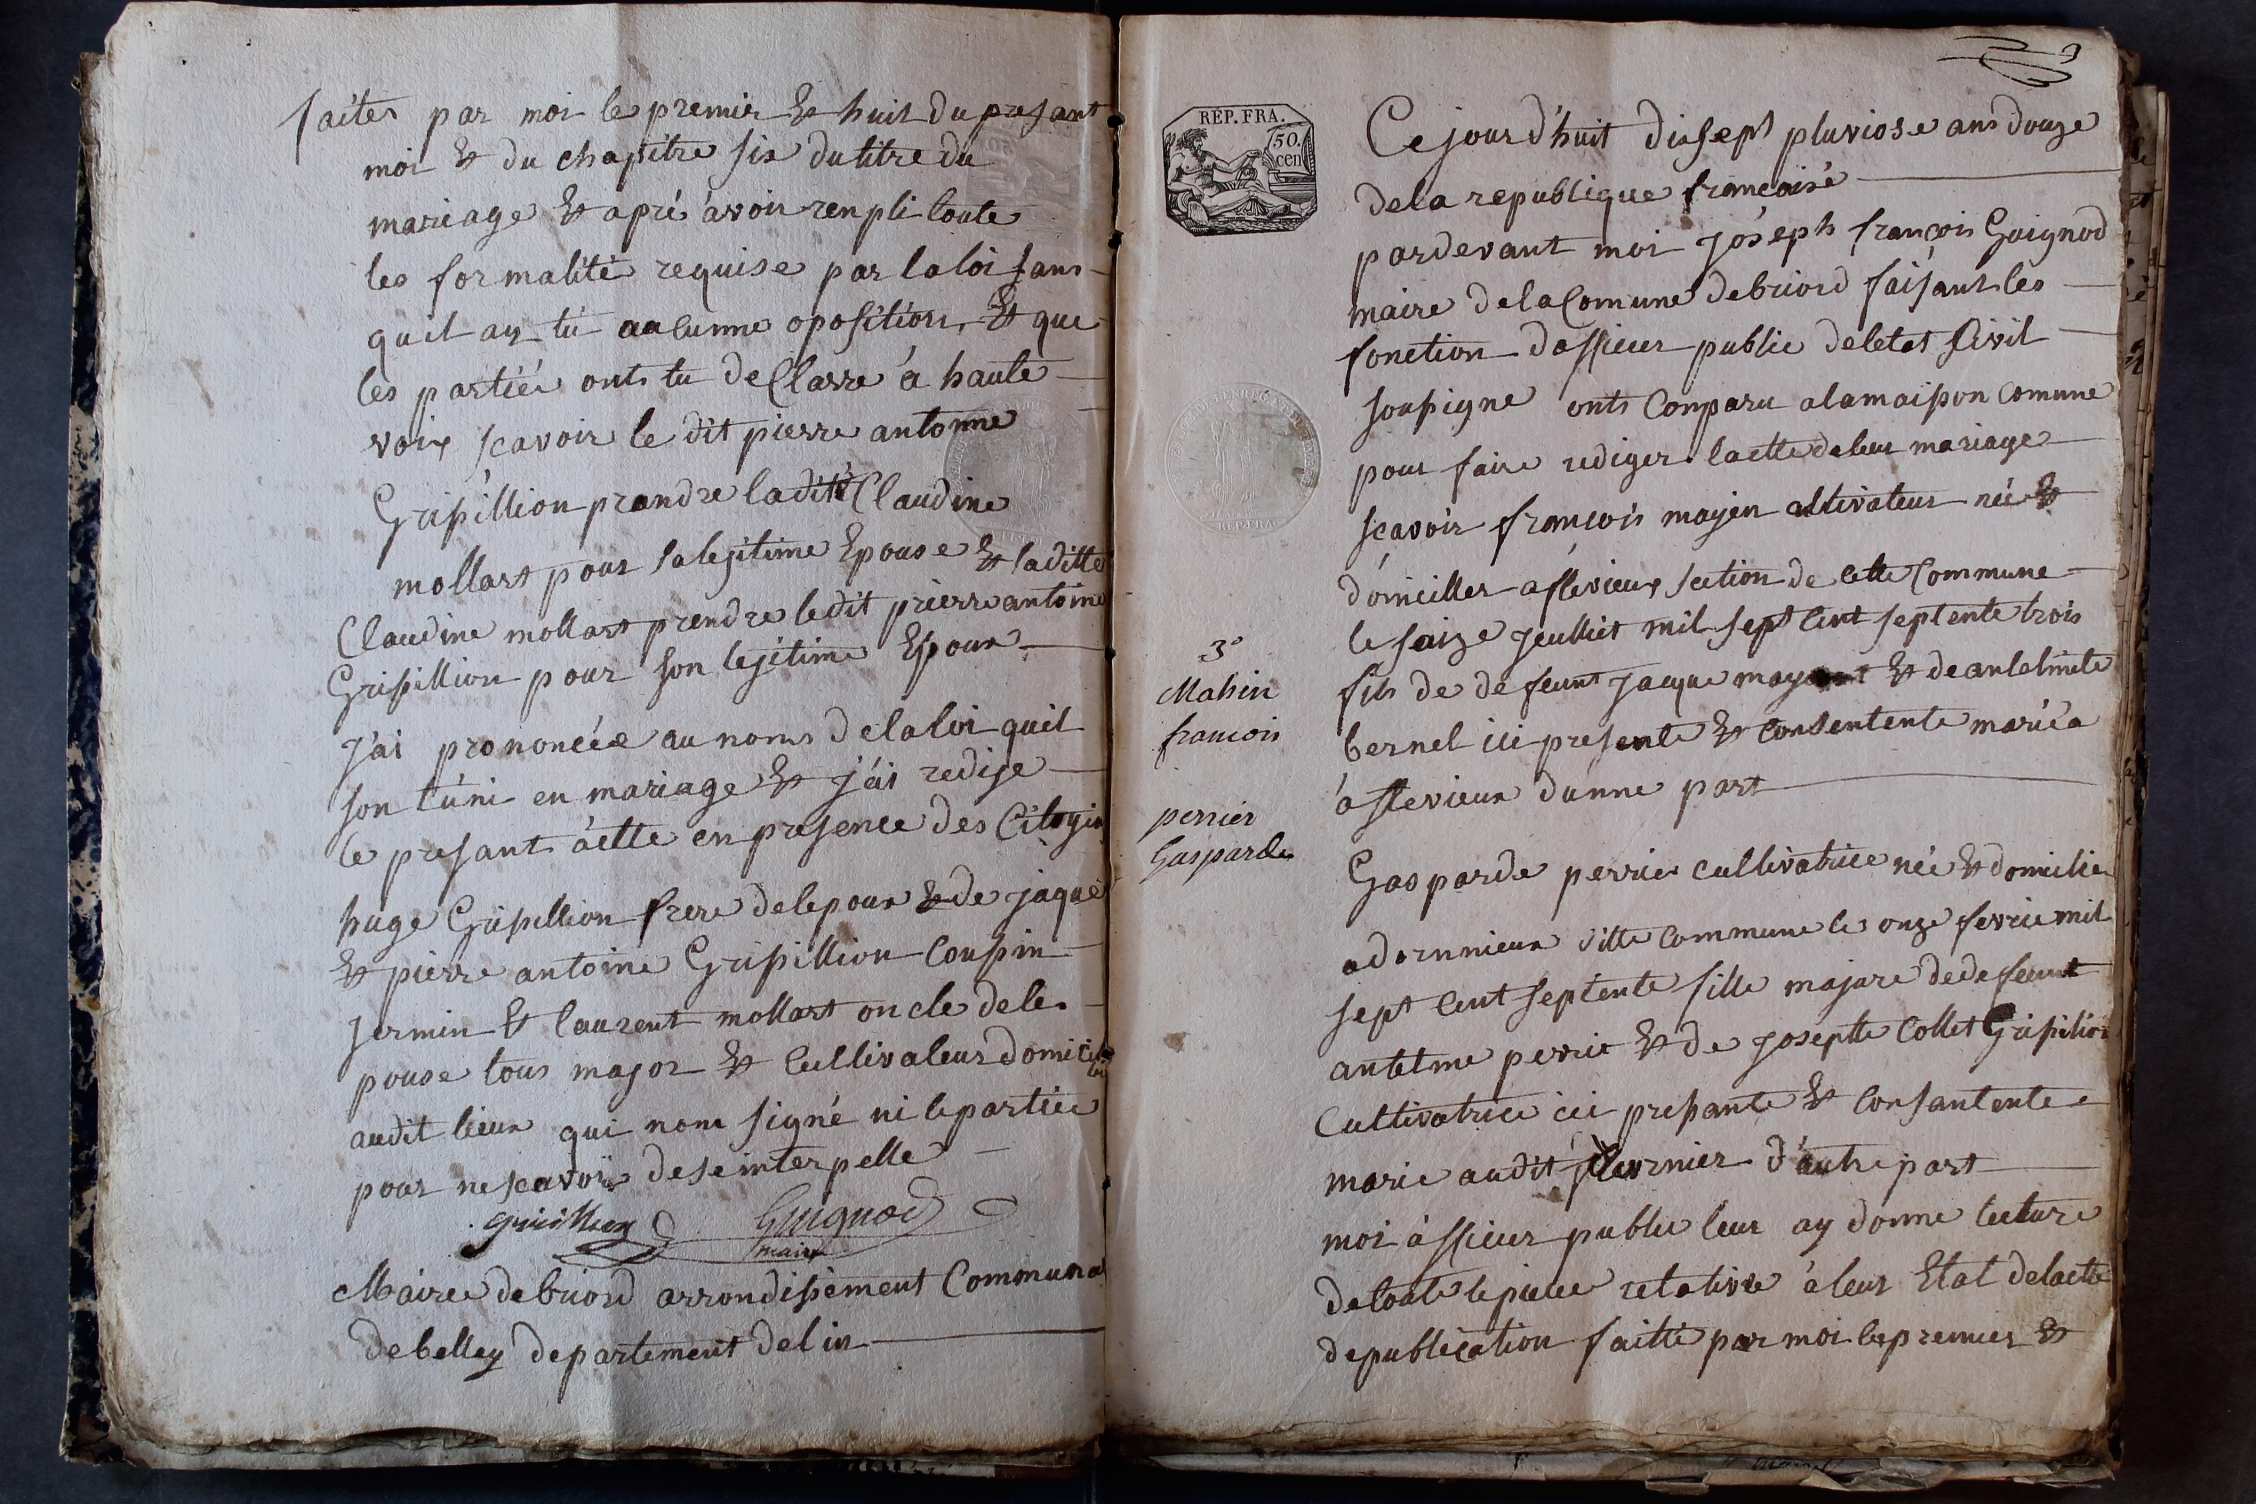 faites par moi le premier & huit du presant
moi & du chapitre six du titre du
mariage & apré avoir renpli toute
les formalité requise par la loi sans
quil ay tü aucunne oposition, & que
les partiéé onts tu de Clarré a haute
voix scavoir le dit pierre antonne
Grisillion prandre ladite Claudine
mollart pour sa legitime Epouse & laditte
Claudine mollart prendre ledit pierre antoine
Grisillion pour son legitime Epoux
J'ai prononcéé au noms de la loi quil
son tuni en mariage & j'ai redige
le presant áctte en presence des Citoyin
huge Grisillion frere de lepoux & de jaque
& pierre antoine Grisillion Coussin
jermin & laurent mollart oncle de le
pouse tous major & Cultivateur domicil
audit lieux qui nom signé ni le partiée
pour ne scavoir de se interpelle
Guignod
maire
Mairee de briord arrondissement Communal
de belley departement de lin
REP. FRA.
50.
cen
Ce jour d'huit dix sept pluviose ans douze
de la republique francoisé
par devant moi joséph françois Guignod
maire de la Comune de briord faisant les
fonction dofficier public de letat Sivil
soussigne onts Conparu a la maisson comune
pour faire rediger lactte de leur mariage
scavoir francois mayen cultivateur née &
domiciller a flevieux section de cette Commune
le saize jeulliet mil sept Cent septente trois
3°
Mahin
francois
fils de defeunt jacque & de antelmete
bernel ici presente & consentente mariéa
á flevieux dunne part
perrier
Gasparde
Gasparde perrier cultivatrice née & domicilie
a dornnieux ditte commune le onze fevrie mil
sept Cent septente fille majare de defeunt
antelme perrie & de josephte Collet Grisilion
Cultivatrice ici pressante & Consantente
marie audit d'autre part
moi ófficier publie leur ay donne lecture
de toute le piece relative á leur Etat de lactte
de publication faitte par moi le premier &